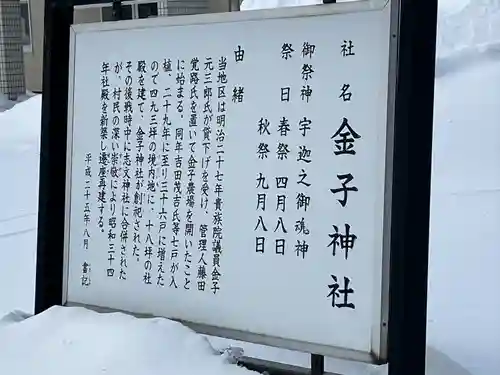 社名 金子神社
御祭神 宇迦之御魂神
祭日 春祭 四月八日
秋祭 九月八日
由緒
当地区は明治二十七年貴族院議員金子
元三郎氏が貸下げを受け、管理人藤田
覚路氏を置いて金子農場を開いたこと
に始まる。同年吉田茂吉氏等七戸が入
植、二十九年に至り三十六戸に増えた
ので四九三坪の境内地に、十八坪の社
殿を建て、金子神社が創祀された。
その後戦時中に志文神社に合併された
が、村民の深い崇敬により昭和三十四
年社殿を新築し遷座再建する。
平成二十五年八月 書記